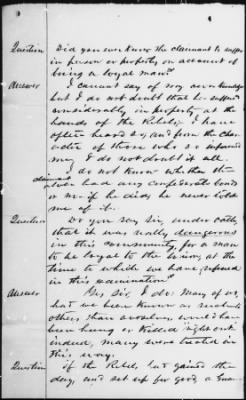 Question Did you ever know the claimant to suffer
in person or property on account of
being a loyal man?
Answer I cannot say of my own knowledge
but I do not doubt that he suffered
considerably in property at the
hands of the Rebels; I have
often heard so, and from the char-
acter of those who so informed
me, I do not doubt it all.
I do not know whether the
claimant
ever had any confederate bonds
or no; if he did, he never told
me of it.
Question Do you say Sir, under oath,
that it was really dangerous
in this community, for a man
to be loyal to the union, at the
time to which we have referred
in this examination
Answer Yes, Sir, I do. Many of us,
had we been known as
others, than ourselves, would have
been hung or killed right out
indeed, many were treated in
this way.
Question If the Rebels, had gained the
day, and set up for good, a